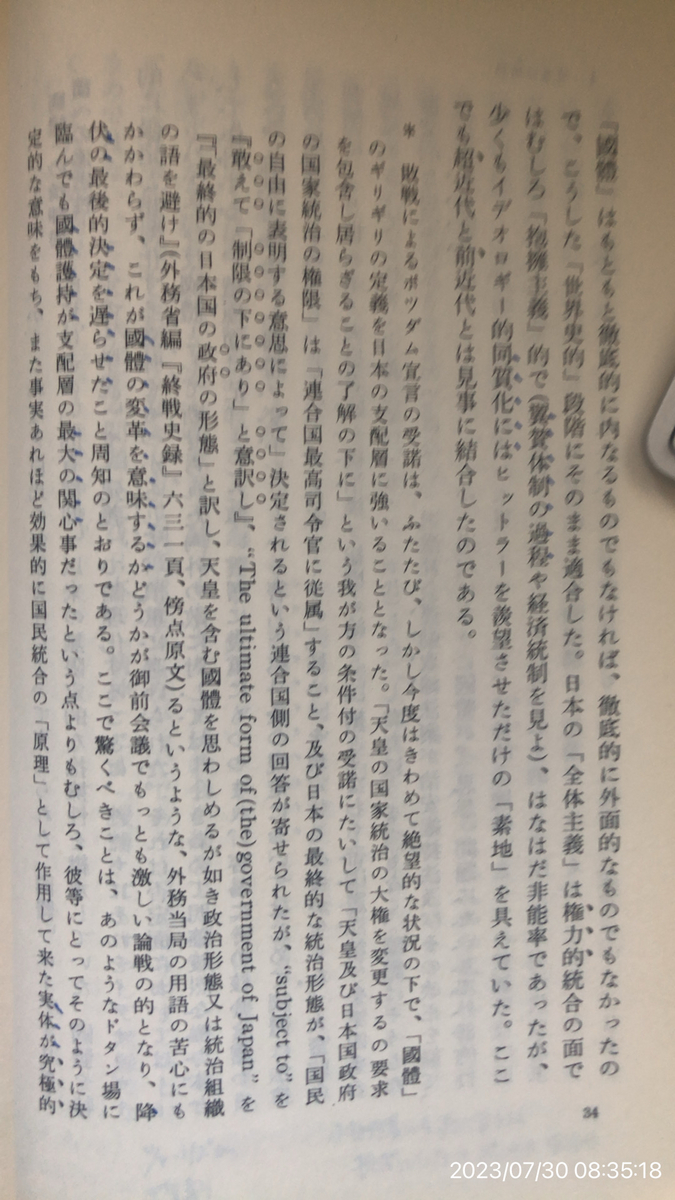 34
「國體」はもともと徹底的に内なるものでもなければ、徹底的に外面的なものでもなかったの
で、こうした「世界史的」段階にそのまま適合した。日本の「全体主義」は権力的統合の面で
はむしろ「抱擁主義」的で(翼賛体制の過程や経済統制を見よ)、はなはだ非能率であったが、
少くもイデオロギー的同質化にはヒットラーを羨望させただけの「素地」を具えていた。ここ
でも超近代と前近代とは見事に結合したのである。
* 敗戦によるポツダム宣言の受諾は、ふたたび、しかし今度はきわめて絶望的な状況の下で、「國體」
のギリギリの定義を日本の支配層に強いることとなった。「天皇の国家統治の大権を変更するの要求
を包含し居らざることの了解の下に」という我が方の条件付の受諾にたいして「天皇及び日本国政府
の国家統治の権限」は「連合国最高司令官に従属」すること、及び日本の最終的な統治形態が、「国民
の自由に表明する意思によって」決定されるという連合国側の回答が寄せられたが、"subject to" を
『敢えて「制限の下にあり」と意訳し』、"The ultimate form of(the)government of Japan" を
『「最終的の日本国の政府の形態」と訳し、天皇を含む國體を思わしめるが如き政治形態又は統治組織
の語を避け』(外務省編『終戦史録』六三一頁、傍点原文)るというような、外務当局の用語の苦心にも
かかわらず、これが國體の変革を意味するかどうかが御前会議でもっとも激しい論戦の的となり、降
伏の最後的決定を遅らせたこと周知のとおりである。ここで驚くべきことは、あのようなドタン場に
臨んでも國體護持が支配層の最大の関心事だったという点よりもむしろ、彼等にとってそのように決
定的な意味をもち、また事実あれほど効果的に国民統合の「原理」として作用して来た実体が究極的
2023/07/30 08:35:18